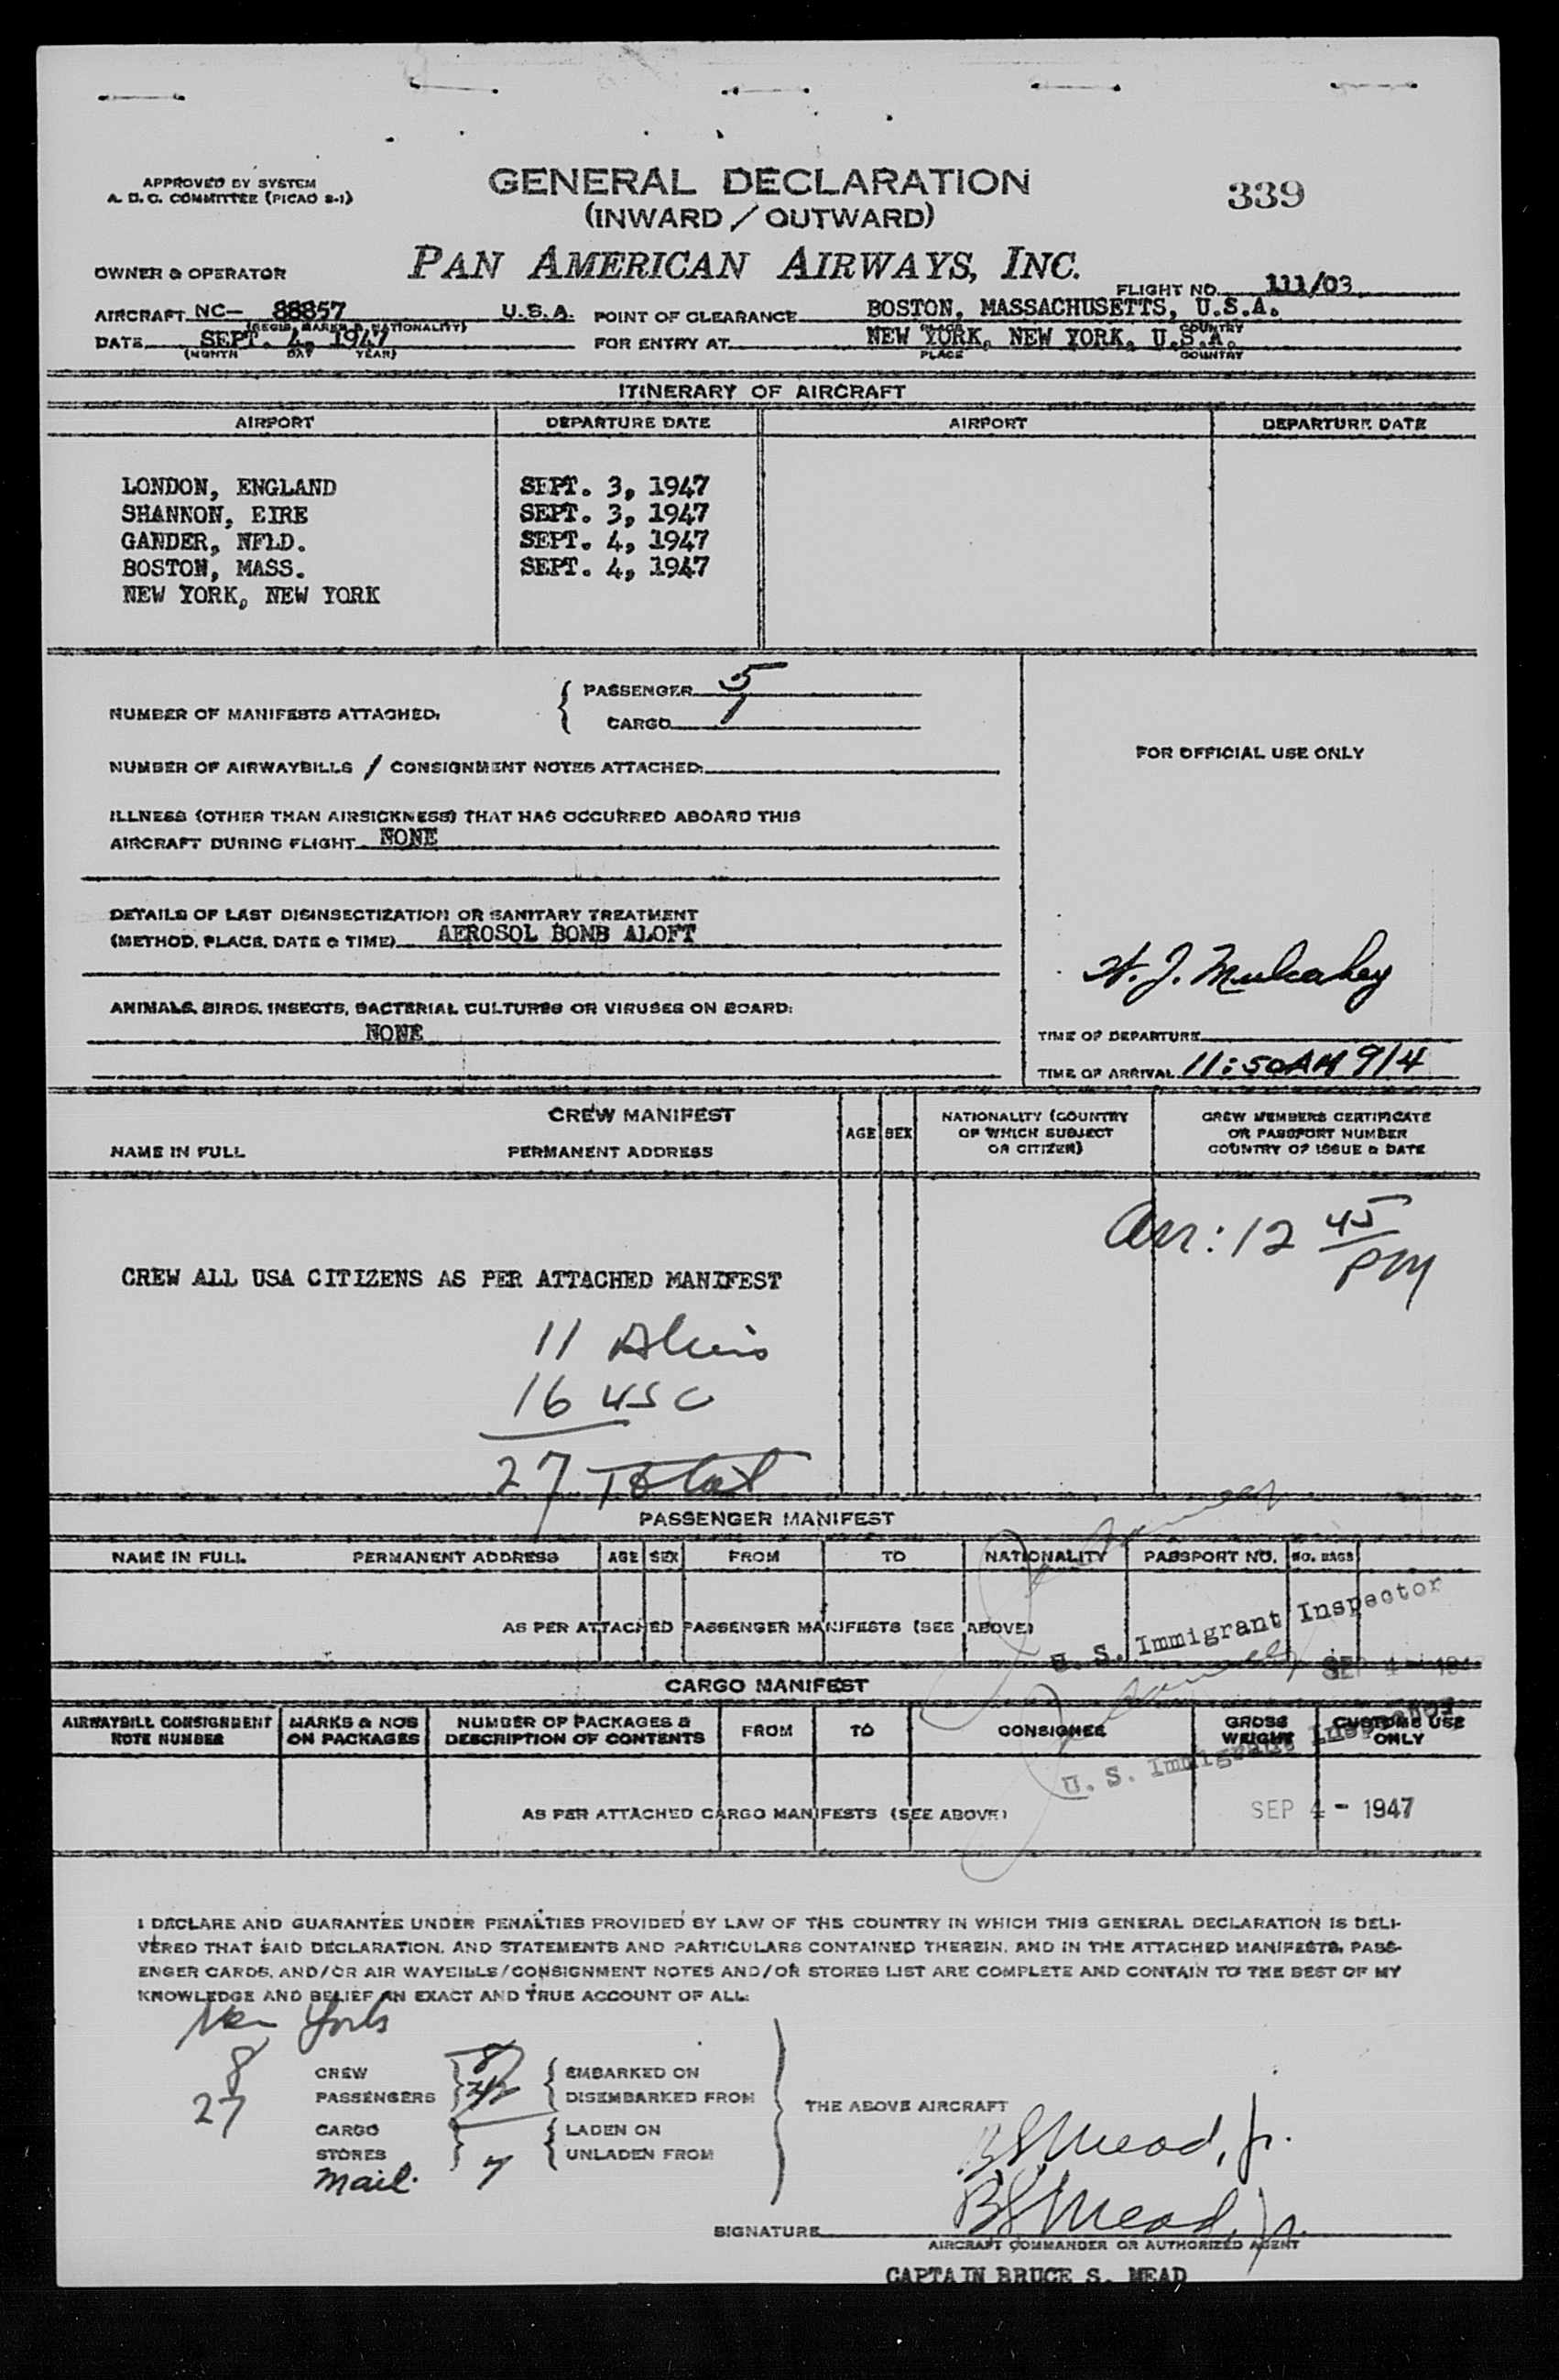 APPROVED BY SYSTEM
A. D. C. COMMITTEE (PICAO 8-1)
GENERAL DECLARATION
(INWARD / OUTWARD)
339
OWNER & OPERATOR
PAN AMERICAN AIRWAYS, INC.
FLIGHT NO. 111/03
AIRCRAFT NC- 88857 U.S.A. POINT OF CLEARANCE BOSTON, MASSACHUSETTS, U.S.A.
(REGIS. MARKS & NATIONALITY) PLACE COUNTRY
DATE SEPT. 4, 1947 FOR ENTRY AT NEW YORK, NEW YORK, U.S.A.
(MONTH DAY YEAR) PLACE COUNTRY
ITINERARY OF AIRCRAFT
AIRPORT DEPARTURE DATE AIRPORT DEPARTURE DATE
LONDON, ENGLAND SEPT. 3, 1947
SHANNON, EIRE SEPT. 3, 1947
GANDER, NFLD. SEPT. 4, 1947
BOSTON, MASS. SEPT. 4, 1947
NEW YORK, NEW YORK
NUMBER OF MANIFESTS ATTACHED.
PASSENGER 5
CARGO 1
NUMBER OF AIRWAYBILLS / CONSIGNMENT NOTES ATTACHED:
FOR OFFICIAL USE ONLY
ILLNESS (OTHER THAN AIRSICKNESS) THAT HAS OCCURRED ABOARD THIS
AIRCRAFT DURING FLIGHT NONE
DETAILS OF LAST DISINSECTIZATION OR SANITARY TREATMENT
(METHOD, PLACE, DATE & TIME) AEROSOL BOMB ALOFT
W. J. Mulcahey
ANIMALS, BIRDS, INSECTS, BACTERIAL CULTURES OR VIRUSES ON BOARD:
NONE
TIME OF DEPARTURE
TIME OF ARRIVAL 11:50AM 9/4
CREW MANIFEST
NAME IN FULL PERMANENT ADDRESS AGE SEX
NATIONALITY (COUNTRY
OF WHICH SUBJECT
OR CITIZEN)
CREW MEMBERS CERTIFICATE
OR PASSPORT NUMBER
COUNTRY OF ISSUE & DATE
Arr: 12 45
PM
CREW ALL USA CITIZENS AS PER ATTACHED MANIFEST
11 Aliens
16 USC
27 Total
PASSENGER MANIFEST
NAME IN FULL PERMANENT ADDRESS AGE SEX FROM TO NATIONALITY PASSPORT NO. NO. BAGS
AS PER ATTACHED PASSENGER MANIFESTS (SEE ABOVE)
U. S. Immigrant Inspector
SEP 4 - 1947
CARGO MANIFEST
AIRWAYBILL CONSIGNMENT
NOTE NUMBER
MARKS & NOS
ON PACKAGES
NUMBER OF PACKAGES &
DESCRIPTION OF CONTENTS
FROM TO CONSIGNEE
GROSS
WEIGHT
CUSTOMS USE
ONLY
U. S. Immigrant Inspector
AS PER ATTACHED CARGO MANIFESTS (SEE ABOVE)
SEP 4 - 1947
I DECLARE AND GUARANTEE UNDER PENALTIES PROVIDED BY LAW OF THE COUNTRY IN WHICH THIS GENERAL DECLARATION IS DELI-
VERED THAT SAID DECLARATION, AND STATEMENTS AND PARTICULARS CONTAINED THEREIN, AND IN THE ATTACHED MANIFESTS, PASS-
ENGER CARDS, AND/OR AIR WAYBILLS/CONSIGNMENT NOTES AND/OR STORES LIST ARE COMPLETE AND CONTAIN TO THE BEST OF MY
KNOWLEDGE AND BELIEF AN EXACT AND TRUE ACCOUNT OF ALL:
New York
8 CREW 8 EMBARKED ON
27 PASSENGERS DISEMBARKED FROM
THE ABOVE AIRCRAFT
CARGO LADEN ON
STORES UNLADEN FROM
Mail. 7
BSMead, Jr.
BSMead, Jr.
SIGNATURE
AIRCRAFT COMMANDER OR AUTHORIZED AGENT
CAPTAIN BRUCE S. MEAD